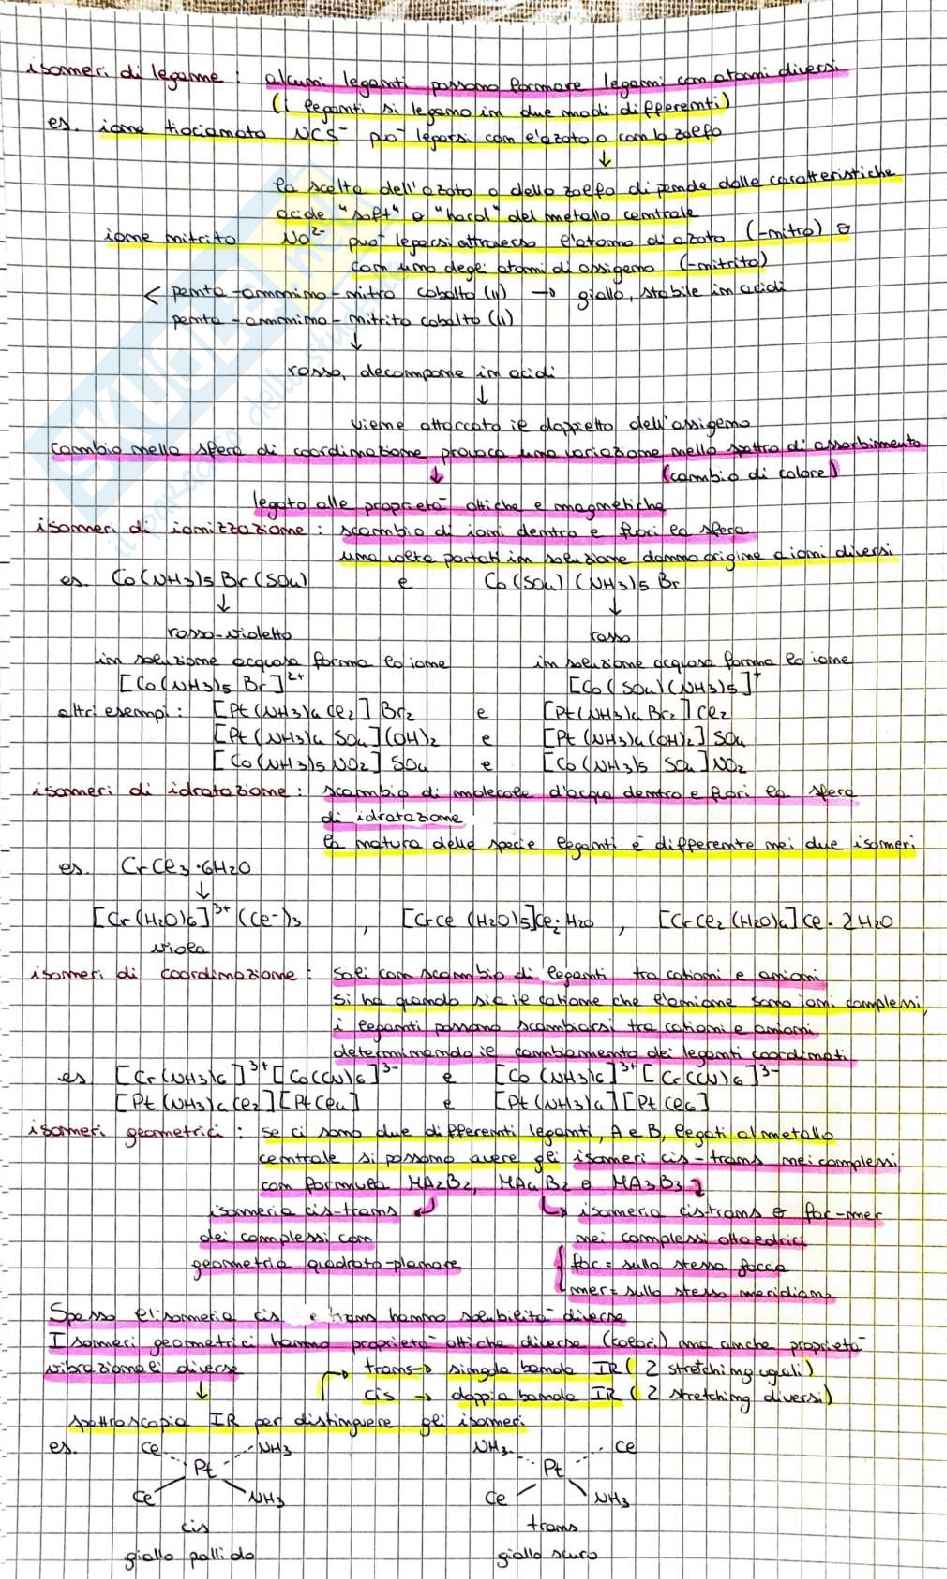 isomeri di legame : alcuni leganti possono formare legami con atomi diversi
(i leganti si legano in due modi differenti)
es. ione tiocianato NCS⁻ può legarsi con l'azoto o con lo zolfo
↓
la scelta dell'azoto o dello zolfo dipende dalle caratteristiche
acide "soft" o "hard" del metallo centrale
ione nitrito NO²⁻ può legarsi attraverso l'atomo di azoto (-nitro) o
con uno degli atomi di ossigeno (-nitrito)
< penta-ammino-nitro cobalto (II) → giallo, stabile in acidi
penta-ammino-nitrito cobalto (II)
↓
rosso, decompone in acidi
↓
viene attaccato il doppietto dell'ossigeno
cambio nella sfera di coordinazione provoca una variazione nello spettro di assorbimento
↓ (cambio di colore)
legato alle proprietà ottiche e magnetiche
isomeri di ionizzazione : scambio di ioni dentro e fuori la sfera
una volta portati in soluzione danno origine a ioni diversi
es. Co(NH3)5 Br (SO4) e Co(SO4)(NH3)5 Br
↓ ↓
rosso-violetto rosso
in soluzione acquosa forma lo ione in soluzione acquosa forma lo ione
[Co(NH3)5 Br]²⁺ [Co(SO4)(NH3)5]⁺
altri esempi : [Pt(NH3)4 Cl2] Br2 e [Pt(NH3)4 Br2] Cl2
[Pt(NH3)4 SO4](OH)2 e [Pt(NH3)4(OH)2] SO4
[Co(NH3)5 NO2] SO4 e [Co(NH3)5 SO4] NO2
isomeri di idratazione : scambio di molecole d'acqua dentro e fuori la sfera
di idratazione
la natura delle specie leganti è differente nei due isomeri
es. CrCl3·6H2O
↓
[Cr(H2O)6]³⁺(Cl⁻)3 , [CrCl (H2O)5]Cl2·H2O , [CrCl2(H2O)4]Cl·2H2O
viola
isomeri di coordinazione : sali con scambio di leganti tra cationi e anioni
si ha quando sia il catione che l'anione sono ioni complessi,
i leganti possono scambiarsi tra cationi e anioni
determinando il cambiamento dei leganti coordinati
es [Cr(NH3)6]³⁺[Co(CN)6]³⁻ e [Co(NH3)6]³⁺[Cr(CN)6]³⁻
[Pt(NH3)4Cl2][PtCl4] e [Pt(NH3)4][PtCl6]
isomeri geometrici : se ci sono due differenti leganti, A e B, legati al metallo
centrale si possono avere gli isomeri cis-trans nei complessi
con formula MA2B2, MA4B2 e MA3B3
isomeria cis-trans ↲ ↳ isomeria cis-trans o fac-mer
dei complessi con nei complessi ottaedrici
geometria quadrato-planare { fac = sulla stessa faccia
mer = sullo stesso meridiano
Spesso l'isomeria cis e trans hanno solubilità diverse
I isomeri geometrici hanno proprietà ottiche diverse (colori) ma anche proprietà
vibrazionali diverse → trans → singola banda IR (2 stretching uguali)
↓ cis → doppia banda IR (2 stretching diversi)
spettroscopia IR per distinguere gli isomeri
es. Cl NH3 NH3 Cl
Pt Pt
Cl NH3 Cl NH3
cis trans
giallo pallido giallo scuro